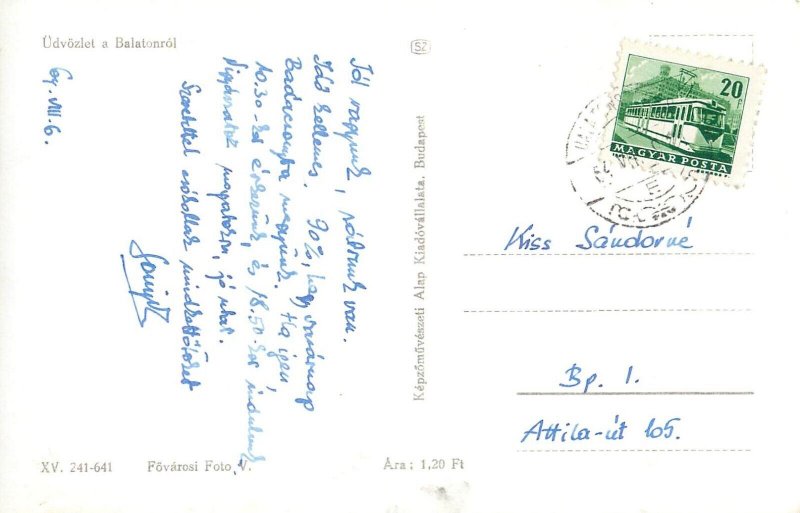 Üdvözlet a Balatonról
64. VIII. 6.
Jól vagyunk, nálunk van.
Idő kellemes. 90%, hogy vasárnap
Badacsonyba megyünk. Ha igen
10.30-kor érkezünk, és 18.50-kor indulunk
Vigyázzatok magatokra, jó
Szeretettel csókollak mindkettőtöket
SZ
Képzőművészeti Alap Kiadóvállalata, Budapest
20 f
MAGYAR POSTA
Kiss Sándorné
Bp. I.
Attila-út 105.
XV. 241-641
Fővárosi Foto V.
Ára: 1,20 Ft